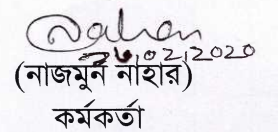 ২৬.02.2020
(নাজমুন নাহার)
কর্মকর্তা